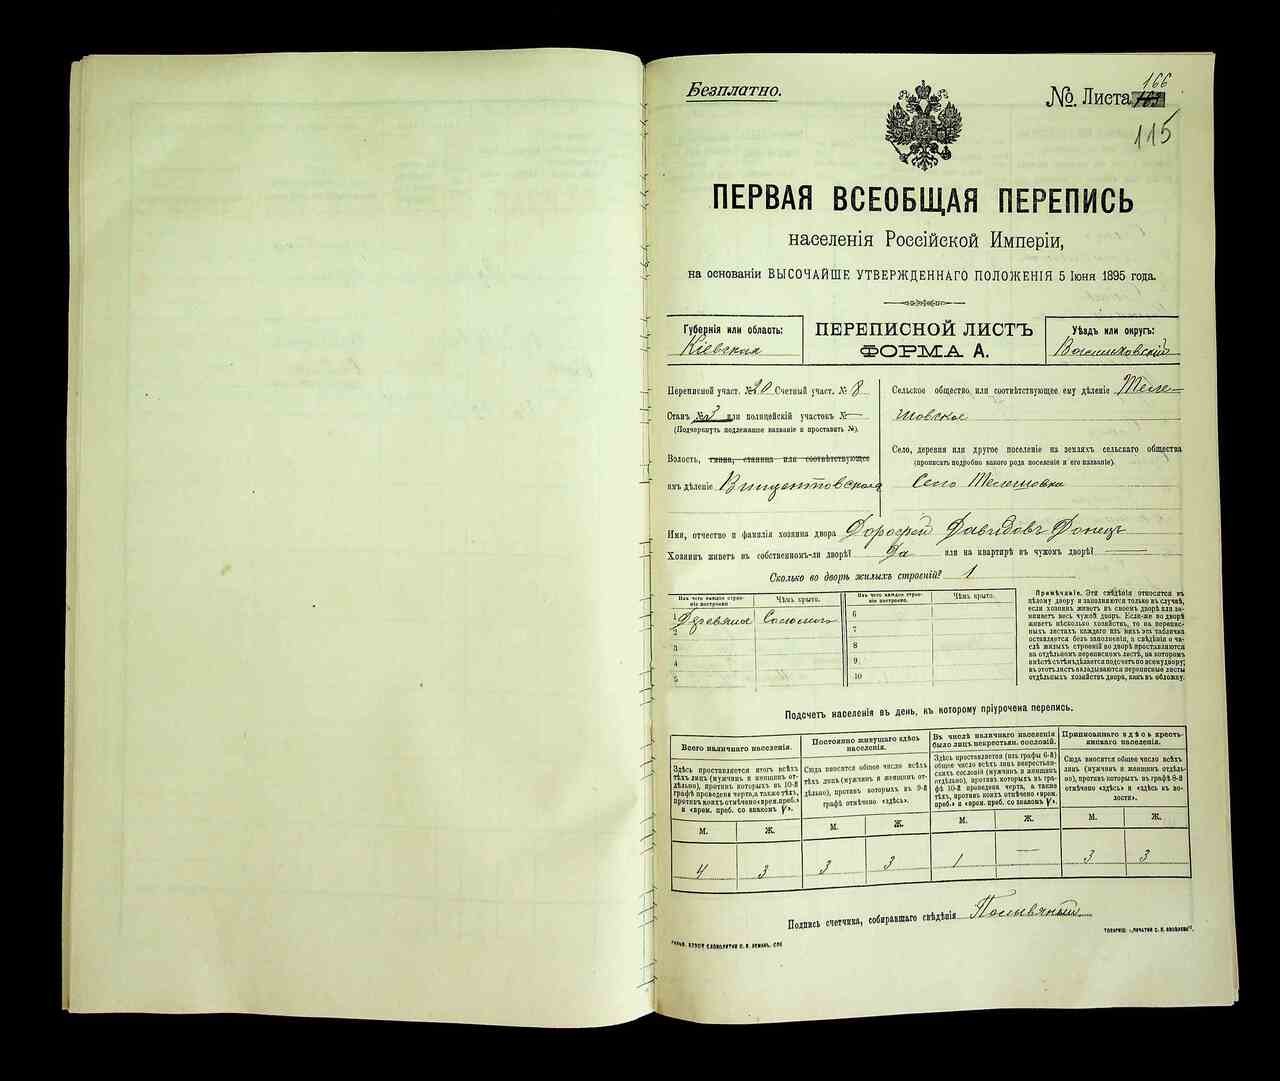 Безплатно.
№. Листа 166
115
ПЕРВАЯ ВСЕОБЩАЯ ПЕРЕПИСЬ
населенія Россійской Имперіи,
на основаніи ВЫСОЧАЙШЕ УТВЕРЖДЕННАГО ПОЛОЖЕНІЯ 5 Іюня 1895 года.
Губернія или область:
Кіевская
ПЕРЕПИСНОЙ ЛИСТЪ
ФОРМА А.
Уѣздъ или округъ:
Васильковскій
Переписной участ. № 20 Счетный участ. № 8
Станъ № 3 или полицейскій участокъ №
(Подчеркнуть подлежащее названіе и проставить №).
Волость, гмина, станица или соотвѣтствующее
имъ дѣленіе Винцентовская
Сельское общество или соотвѣтствующее ему дѣленіе Теле-
шовское
Село, деревня или другое поселеніе на земляхъ сельскаго общества
(прописать подробно какого рода поселеніе и его названіе).
Село Телешовка
Имя, отчество и фамилія хозяина двора Дорофей Давидовъ Донецъ
Хозяинъ живетъ въ собственномъ-ли дворѣ? Да или на квартирѣ въ чужомъ дворѣ?
Сколько во дворѣ жилыхъ строеній? 1
Изъ чего каждое строе-
ніе построено
Чѣмъ крыто.
Изъ чего каждое строе-
ніе построено.
Чѣмъ крыто.
1 Деревяна Соломою
2
3
4
5
6
7
8
9.
10
Примѣчаніе. Эти свѣдѣнія относятся къ
цѣлому двору и заполняются только въ случаѣ,
если хозяинъ живетъ въ своемъ дворѣ или за-
нимаетъ весь чужой дворъ. Если-же во дворѣ
живетъ нѣсколько хозяйствъ, то на перепис-
ныхъ листахъ каждаго изъ нихъ эта табличка
оставляется безъ заполненія, а свѣдѣнія о чи-
слѣ жилыхъ строеній во дворѣ проставляются
на отдѣльномъ переписномъ листѣ, на которомъ
вмѣстѣ съ тѣмъ дѣлается подсчетъ по всему двору;
въ этотъ листъ вкладываются переписные листы
отдѣльныхъ хозяйствъ двора, какъ въ обложку.
Подсчетъ населенія въ день, къ которому пріурочена перепись.
Всего наличнаго населенія.
Здѣсь проставляется итогъ всѣхъ
тѣхъ лицъ (мужчинъ и женщинъ от-
дѣльно), противъ которыхъ въ 10-й
графѣ проведена черта, а также тѣхъ,
противъ коихъ отмѣчено «врем. преб.»
и «врем. преб. со знакомъ V».
Постоянно живущаго здѣсь
населенія.
Сюда вносится общее число всѣхъ
тѣхъ лицъ (мужчинъ и женщинъ от-
дѣльно), противъ которыхъ въ 9-й
графѣ отмѣчено «здѣсь».
Въ числѣ наличнаго населенія
было лицъ некрестьян. сословій.
Здѣсь проставляется (изъ графы 6-й)
общее число всѣхъ лицъ некрестьян-
скихъ сословій (мужчинъ и женщинъ
отдѣльно), противъ которыхъ въ гра-
фѣ 10-й проведена черта, а также
тѣхъ, противъ коихъ отмѣчено «врем.
преб.» и «врем. преб. со знакомъ V».
Приписаннаго здѣсь кресть-
янскаго населенія.
Сюда вносится общее число всѣхъ
лицъ (мужчинъ и женщинъ отдѣль-
но), противъ которыхъ въ графѣ 8-й
отмѣчено «здѣсь» и «здѣсь въ во-
лости».
М. Ж. М. Ж. М. Ж. М. Ж.
4 3 3 3 1 — 3 3
Подпись счетчика, собиравшаго свѣдѣнія